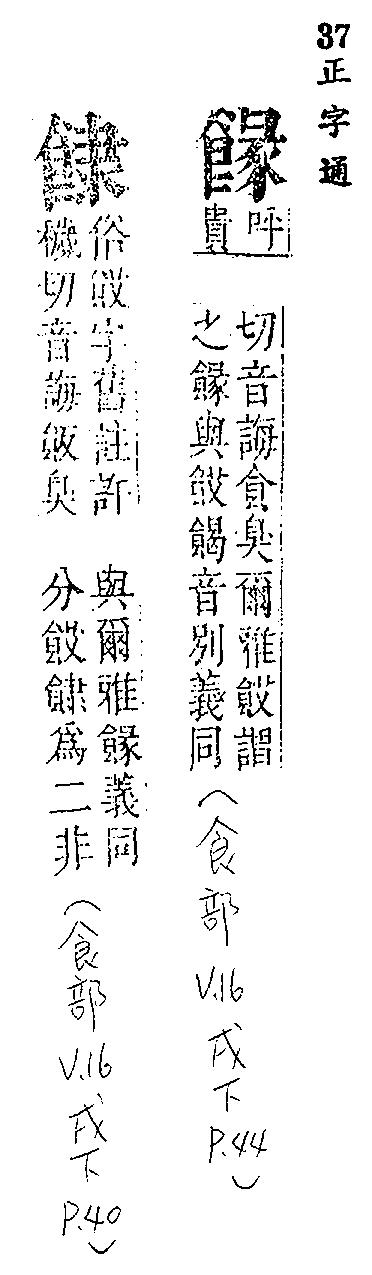 37
正字通
餯
呼
貴
切音誨食臭爾雅餀謂
之餯與餀餲音別義同
(食部 V.16 戌下 P.44)
俗餀字舊註許
穢切音誨餀臭
與爾雅餯義同
分餀爲二非
(食部 V.16 戌下 P.40)